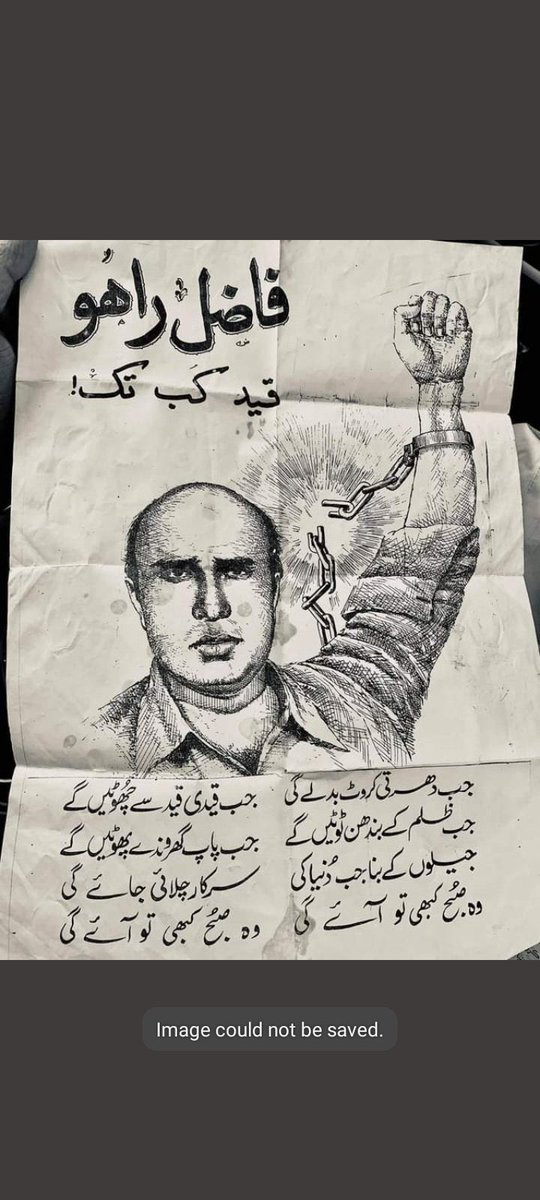 فاضل راھُو
قید کب تک!
جب دھرتی کروٹ بدلے گی جب قیدی قید سے چھُوٹیں گے
جب ظلم کے بندھن ٹوٹیں گے جب پاپ گھروندے پھوٹیں گے
جیلوں کے بنا جب دُنیا کی سرکار چلائی جائے گی
وہ صُبح کبھی تو آئے گی وہ صُبح کبھی تو آئے گی
Image could not be saved.